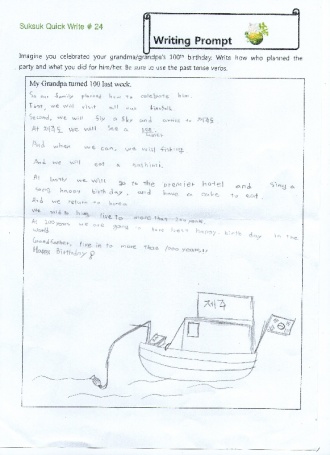 Suksuk Quick Write # 24
Writing Prompt
Imagine you celebrated your grandma/grandpa's 100th birthday. Write how who planned the
party and what you did for him/her. Be sure to use the past tense verbs.
My Grandpa turned 100 last week.
So our family planned how to celebrate him.
First, we will visit all our
Second, we will fly a sky and arrive to 제주도
At 제주도 we will see a
And when we can, we will fishing
And we will eat a sashimi.
At last we will go to the premier hotel and sing a
song happy birthday, and have a cake to eat.
And we return to home.
live to more than 200 years.
At 200 years we are going to have happy birth day in the
world.
Grandfather, live in to more than years
Happy Birthday
제주